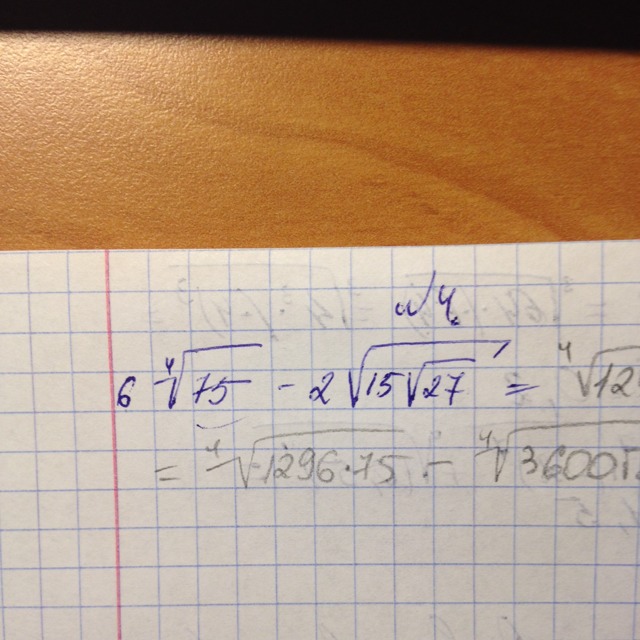 №4
6 ∜75 - 2 √(15√27) = ∜12
= ∜1296·75 - ∜3600